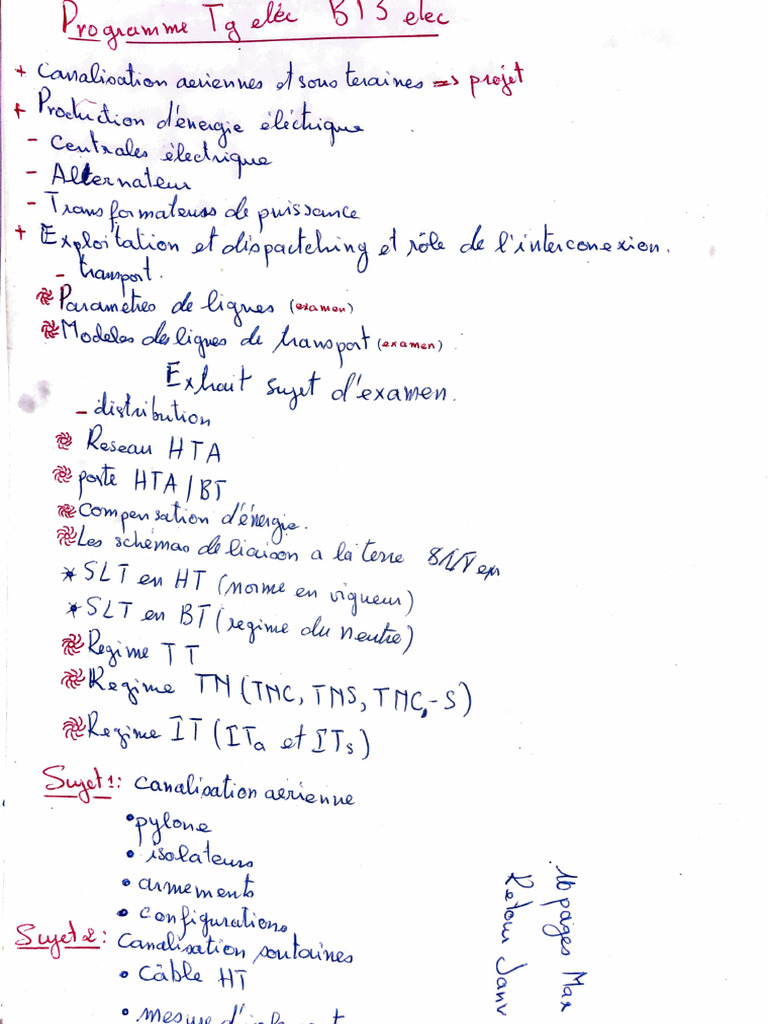 Programme Tg eléc BTS elec
+ Canalisation aeriennes et sous teraines => projet
+ Production d'énergie éléctrique
- Centrales électrique
- Alternateur
- Transformateurs de puissance
+ Exploitation et dispactching et rôle de l'interconexion.
- transport.
Paramètres de lignes (examen)
Modeles de lignes de transport (examen).
Extrait sujet d'examen.
- distribution
Reseau HTA
poste HTA/BT
Compensation d'énergie.
Les schémas de liaison a la terre
* SLT en HT (norme en vigueur)
* SLT en BT (regime du neutre)
Regime TT
Regime TN (TNC, TNS, TNC-S)
Regime IT (ITa et ITs)
Sujet 1: Canalisation aérienne
• pylone
• isolateurs
• armements
• configurations
Sujet 2: Canalisation soutaines
• Câble HT
• mesure
16 pages Max
Retour Janv